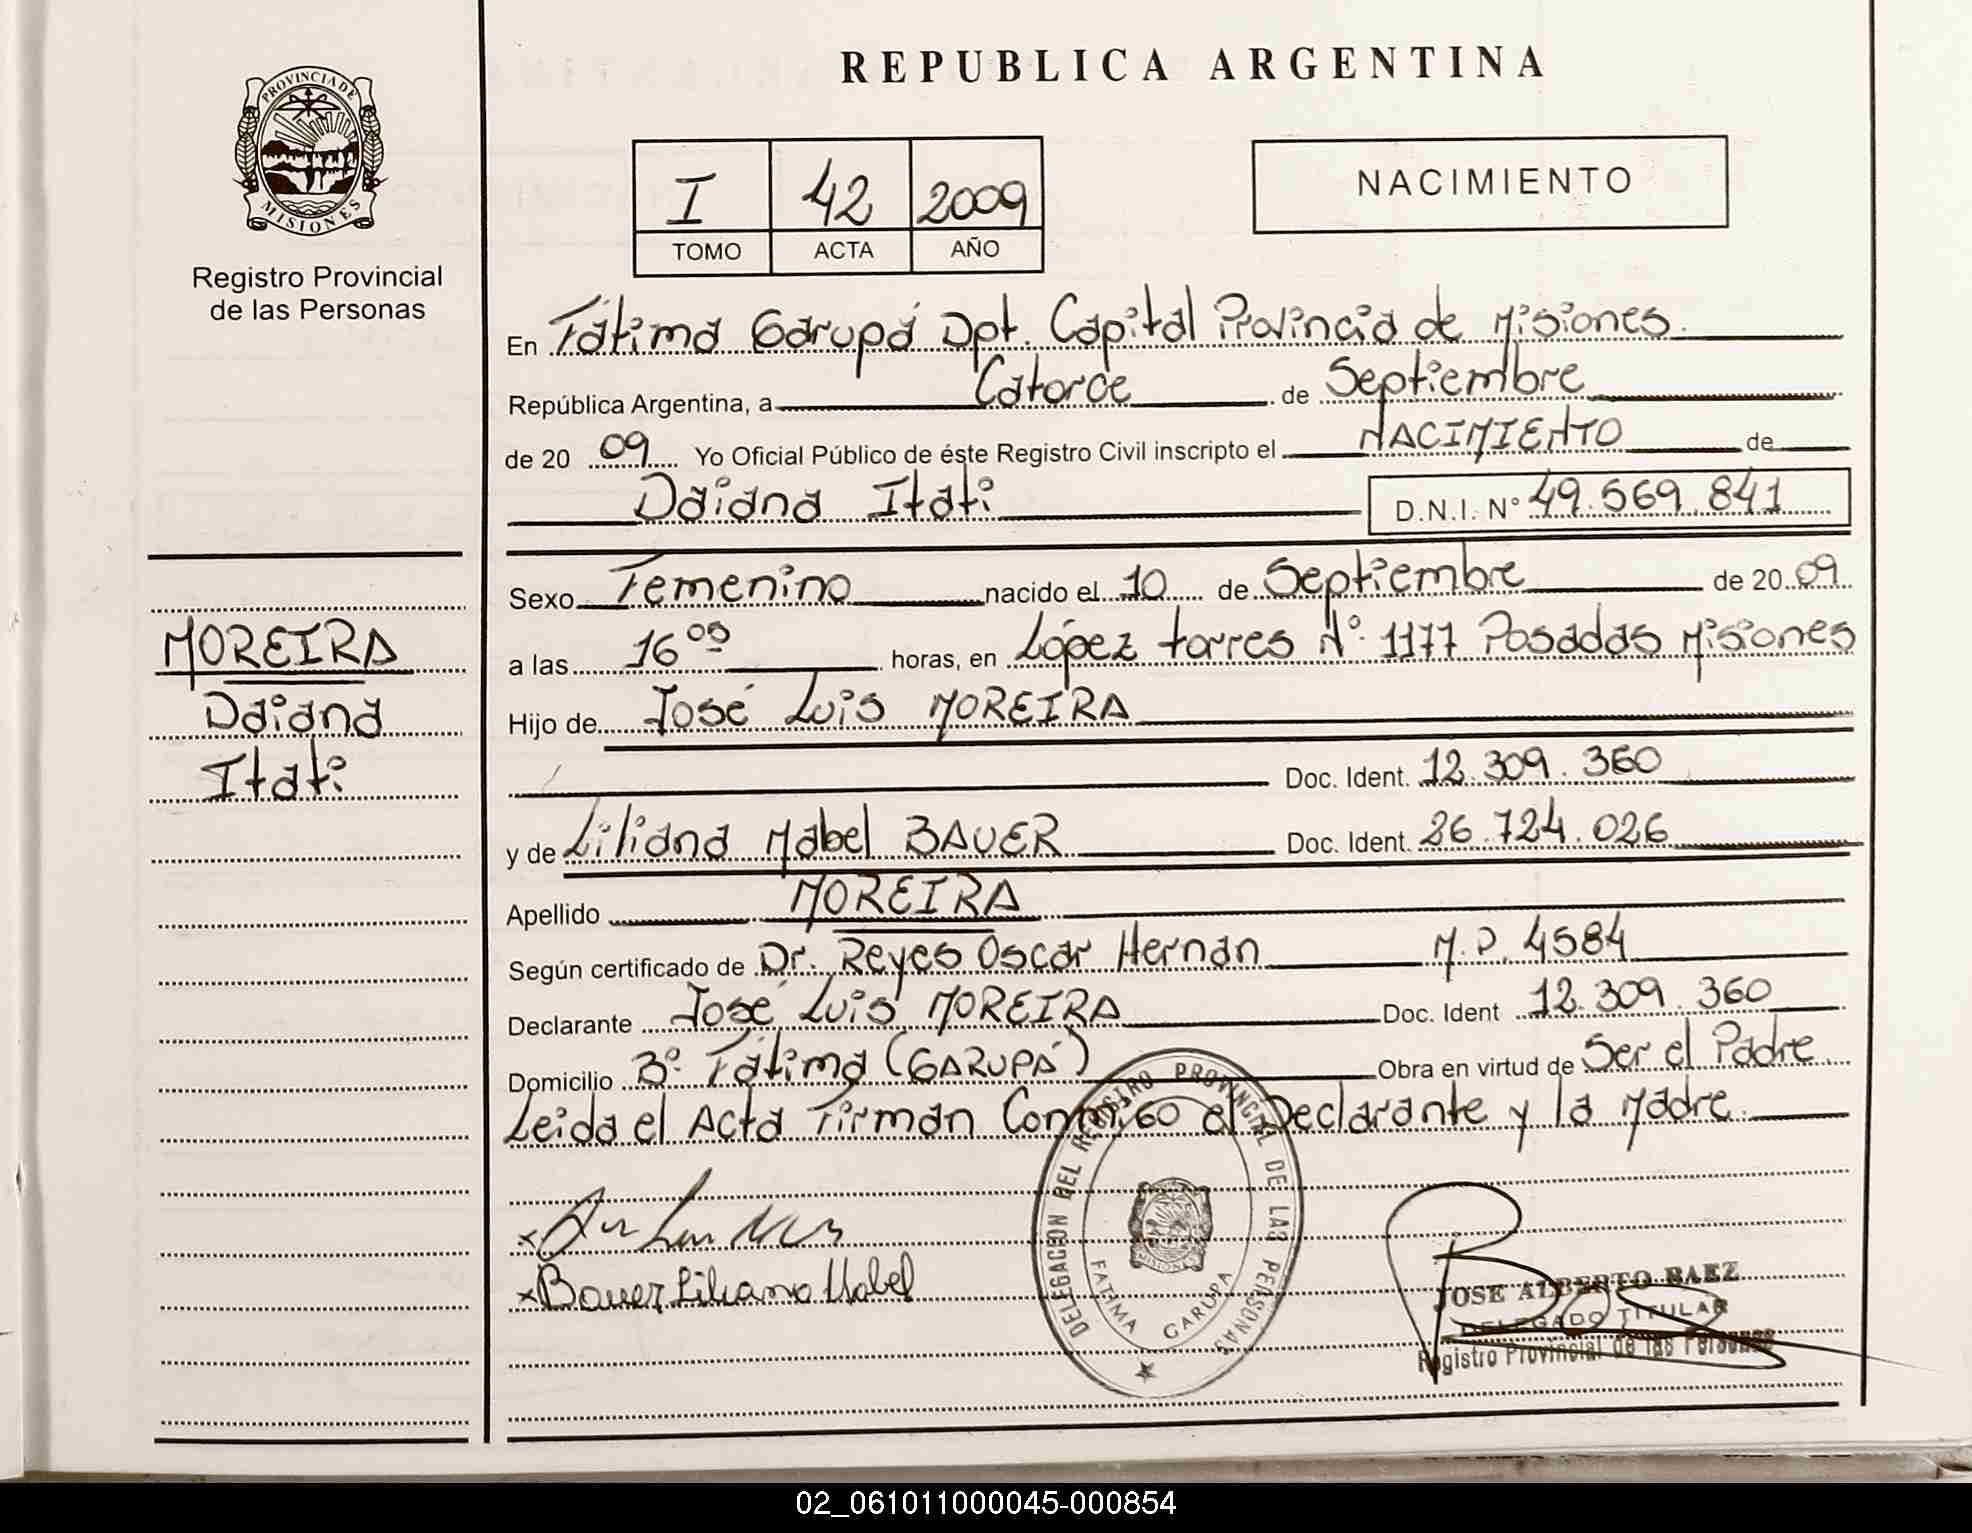 PROVINCIA DE
MISIONES
Registro Provincial
de las Personas
MOREIRA
Daiana
Itati
REPUBLICA ARGENTINA
I 42 2009
TOMO ACTA AÑO
NACIMIENTO
En Fátima Garupá Dpt. Capital Provincia de Misiones.
República Argentina, a Catorce de Septiembre
de 20 09 Yo Oficial Público de éste Registro Civil inscripto el NACIMIENTO de
Daiana Itati D.N.I. N° 49.569.841
Sexo Femenino nacido el 10 de Septiembre de 20 09
a las 16 09 horas, en López torres N° 1177 Posadas Misiones
Hijo de José Luis MOREIRA
Doc. Ident. 12.309.360
y de Liliana Mabel BAUER Doc. Ident. 26.724.026
Apellido MOREIRA
Según certificado de Dr. Reyes Oscar Hernan M.P. 4584
Declarante José Luis MOREIRA Doc. Ident 12.309.360
Domicilio B° Fátima (GARUPÁ) Obra en virtud de Ser el Padre
Leida el Acta Firman Conmigo el Declarante y la Madre.
x
x Bauer Liliana Mabel
DELEGACION DEL REGISTRO PROVINCIAL DE LAS PERSONAS
FATIMA GARUPA
JOSE ALBERTO BAEZ
DELEGADO TITULAR
Registro Provincial de las Personas
02_061011000045-000854